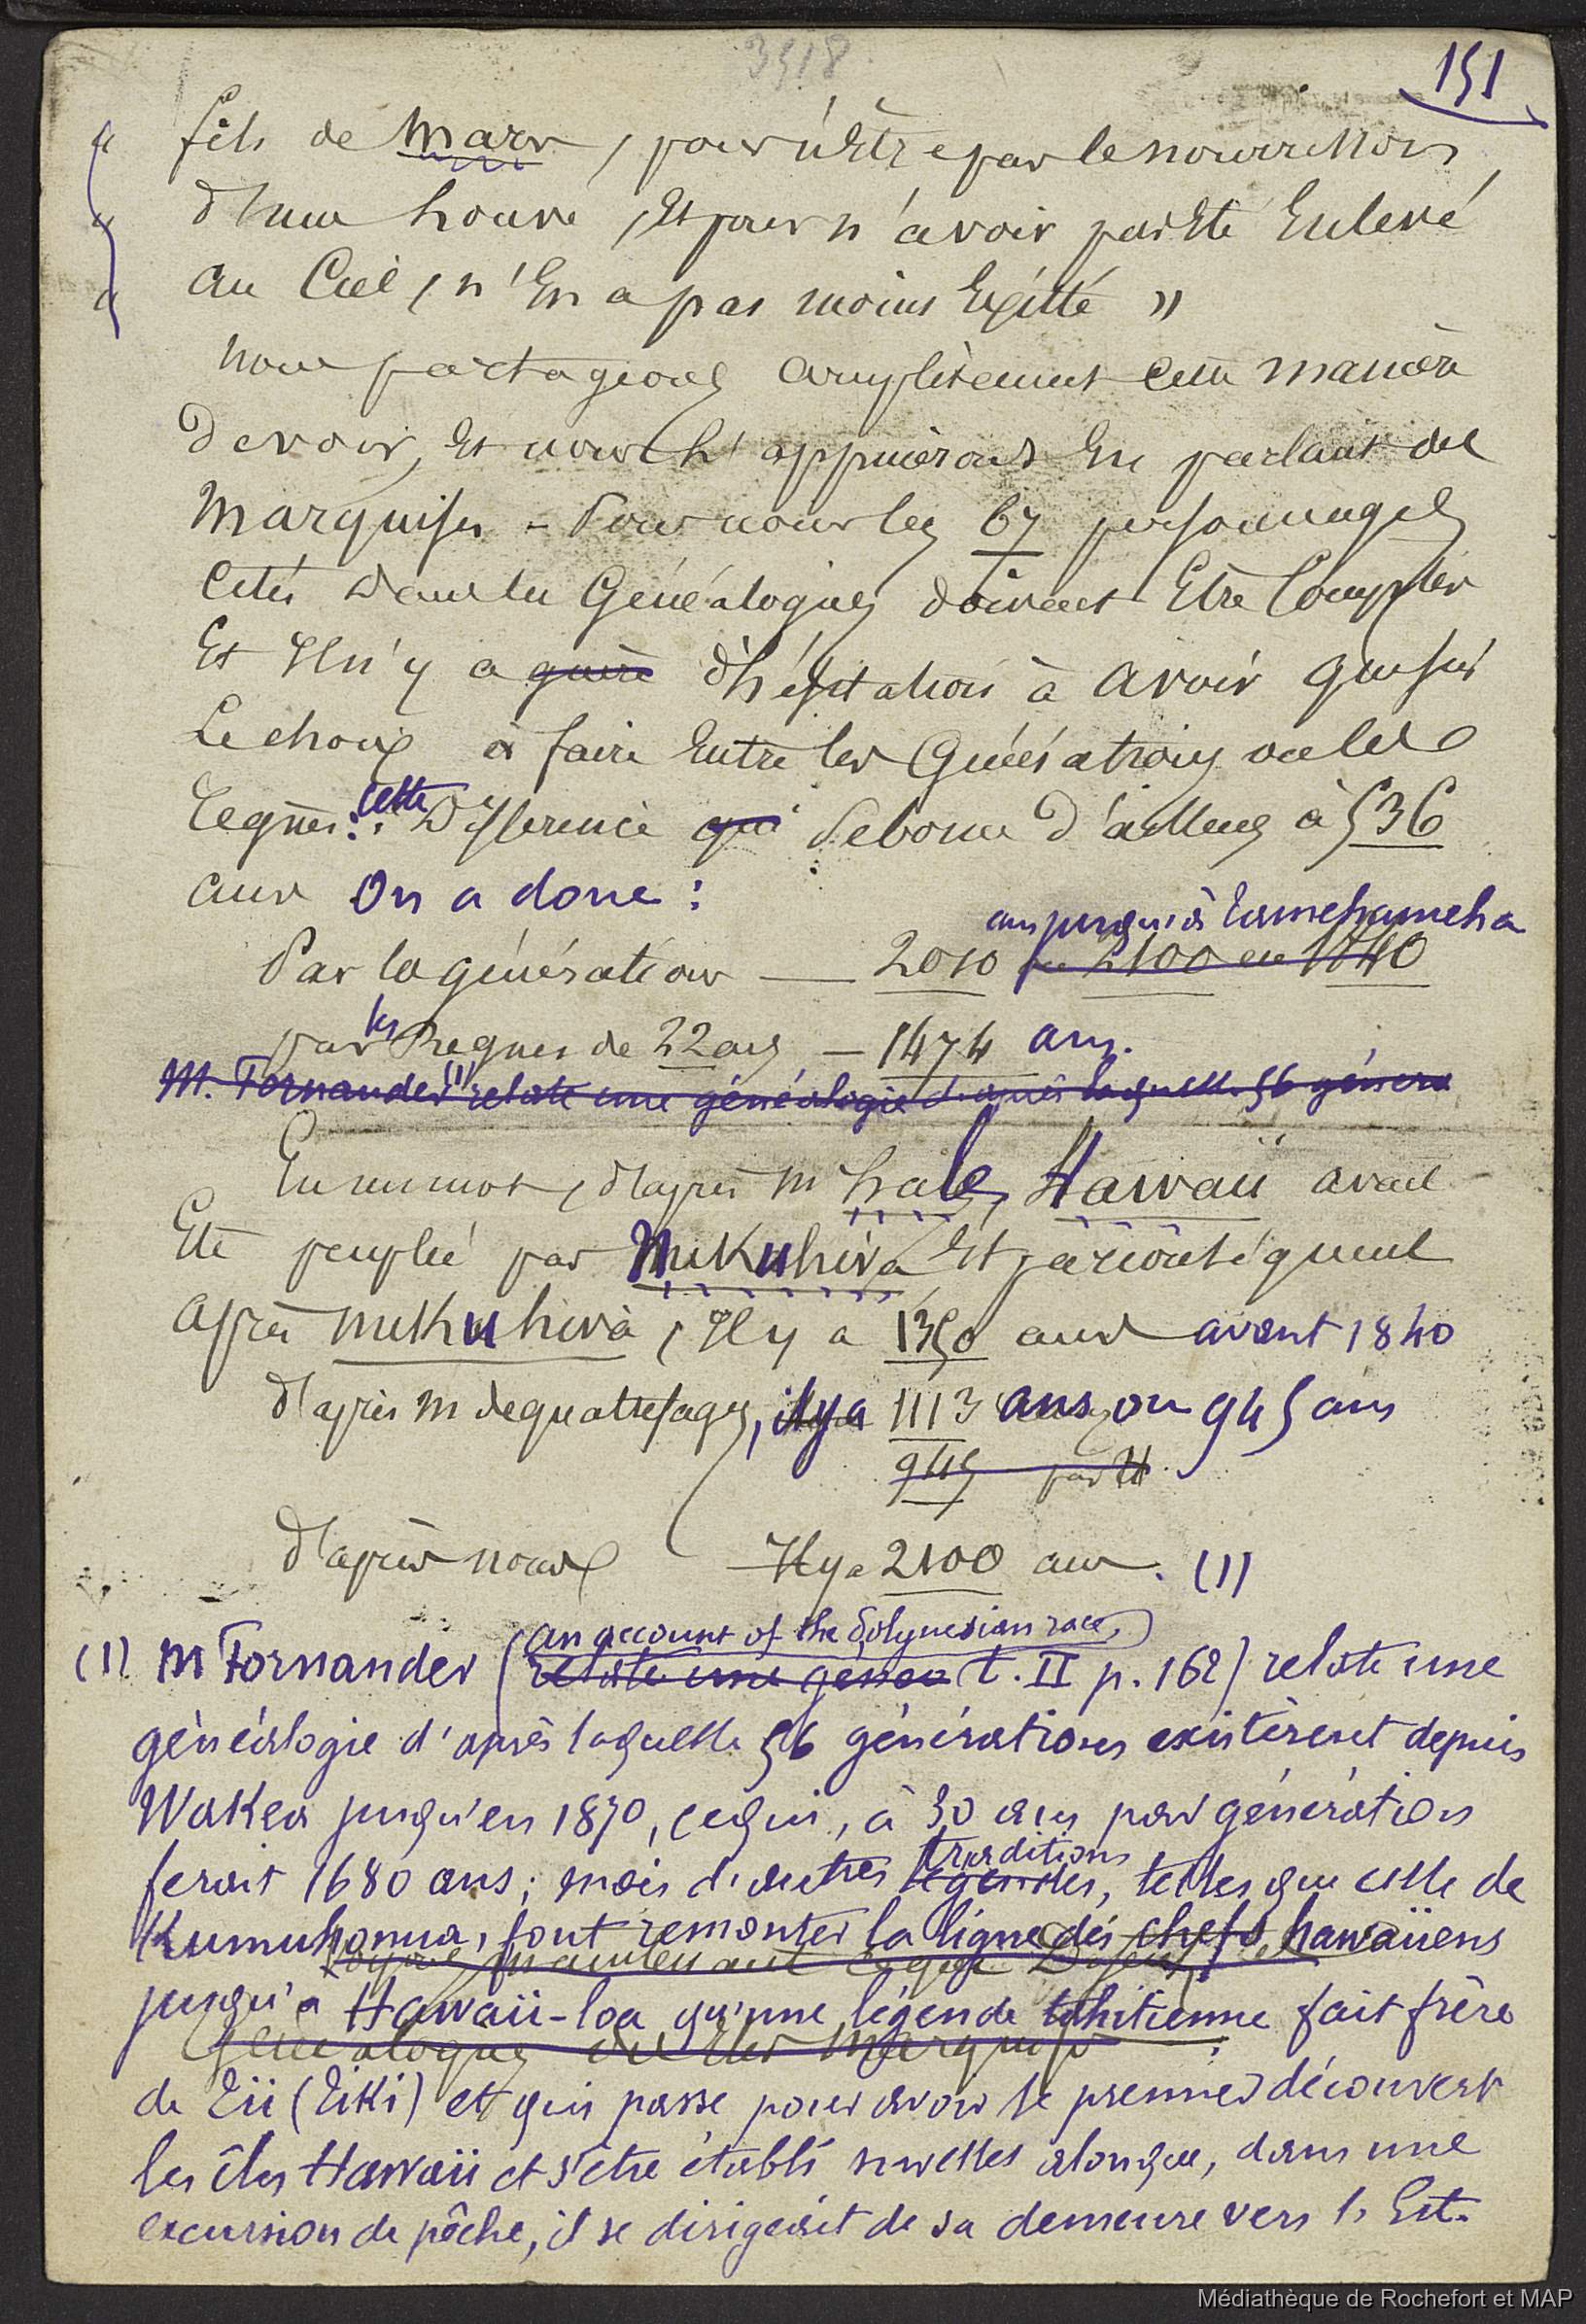 3518
151
" fils de Mars, pour n'être pas le nourrisson
" d'une louve, et pour n'avoir pas été enlevé
" au Ciel, n'en a pas moins existé "
nous partageons complètement cette manière
de voir, et nous l'appuierons en parlant des
Marquises - Pour nous les 67 personnages
cités dans les Généalogies doivent être comptés
et il n'y a guère d'hésitation à avoir que sur
le choix à faire entre les Générations ou les
règnes : cette Différence qui se borne d'ailleurs à 536
ans On a donc :
ans jusqu'à Tamehameha
Par la génération — 2010 ou 2100 en 1840
par les Règnes de 22 ans — 1474 ans.
M. Fornander (1) relate une généalogie d'après laquelle 56 généra
En un mot, d'après M Hale, Hawaii avait
Eté peuplé par Nukuhiva et par conséquent
après Nukuhiva, Il y a 1350 ans avant 1840
d'après M de quatrefages, il y a 1113 ans, ou 945 ans
945 par
d'après nous Il y a 2100 ans. (1)
an account of the Polynesian race,
(1) M Fornander (relate une généa t. II p. 162) relate une
généalogie d'après laquelle 56 générations existèrent depuis
Wakea jusqu'en 1870, ce qui, à 30 ans par génération
ferait 1680 ans ; mais d'autres légendes, traditions telles que celle de
Kumuhonua, font remonter la ligne des chefs hawaiiens
jusqu'à Hawaii-loa qu'une légende tahitienne fait frère
Généalogies des îles Marquises
de Tii (Tiki) et qui passe pour avoir le premier découvert
les îles Hawaii et s'être établi sur elles alors que, dans une
excursion de pêche, il se dirigeait de sa demeure vers l'Est.
Médiathèque de Rochefort et MAP